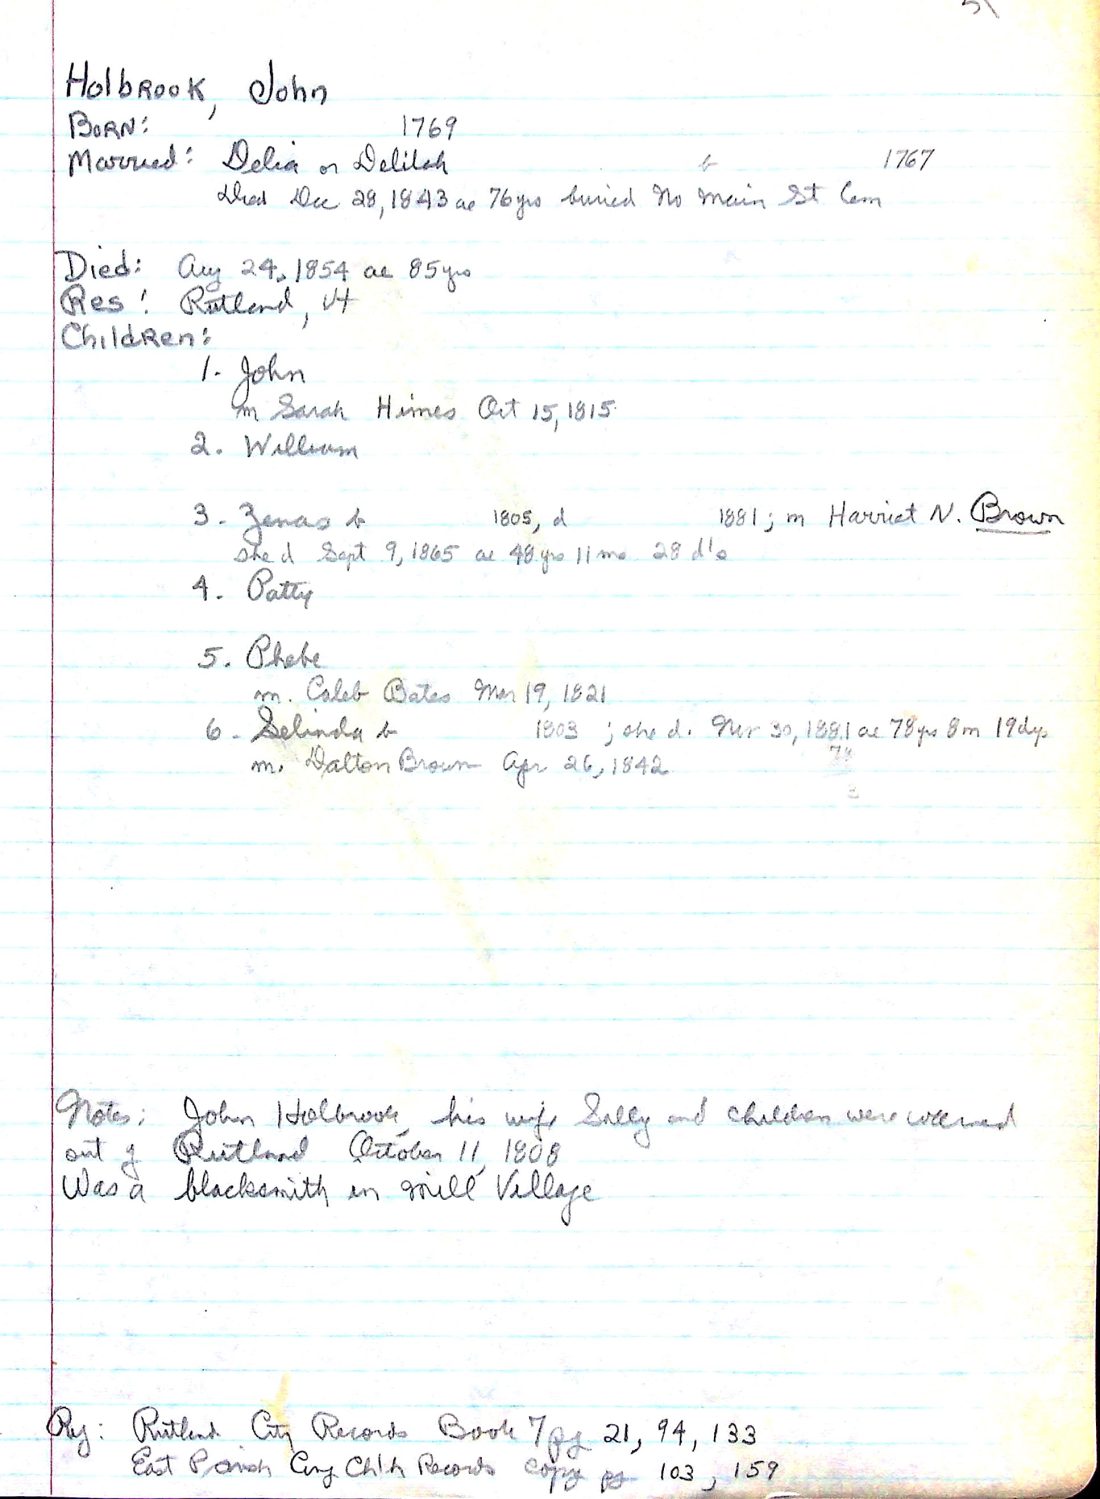 51
Holbrook, John
Born: 1769
Married: Delia or Delilah b 1767
Died Dec 28, 1843 ae 76yrs buried No Main St Cem
Died: Aug 24, 1854 ae 85yrs
Res: Rutland, Vt
Children:
1. John
m Sarah Himes Oct 15, 1815
2. William
3. Zenas b 1805, d 1881; m Harriet N. Brown
she d Sept 9, 1865 ae 48yrs 11mo 28 d's
4. Patty
5. Phebe
m. Caleb Bates Mar 19, 1821
6. Selinda b 1803 ; she d. Nov 30, 1881 ae 78yrs 8m 19dys
78
3
m. Dalton Brown Apr 26, 1842
Notes: John Holbrook, his wife Sally and children were warned
out of Rutland October 11, 1808
Was a blacksmith in Mill Village
Ref: Rutland City Records Book 7 pg 21, 94, 133
East Parish Cong Ch Records copy pg 103, 159